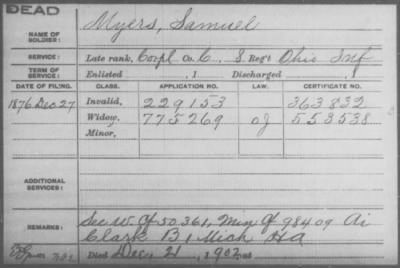 DEAD
NAME OF SOLDIER: Myers, Samuel
SERVICE: Late rank, Corpl Co. C, 8 Reg't Ohio Inf
TERM OF SERVICE: Enlisted , 1 Discharged , 1
DATE OF FILING. CLASS. APPLICATION NO. LAW. CERTIFICATE NO.
1876 Dec 27 Invalid, 229153 363832
Widow, 775269 553538
Minor,
ADDITIONAL SERVICES:
REMARKS: See W. Cf 50.361, Min Cf 98409 Ai
Clark B, Mich HA
Died Dec. 21, 1902, at